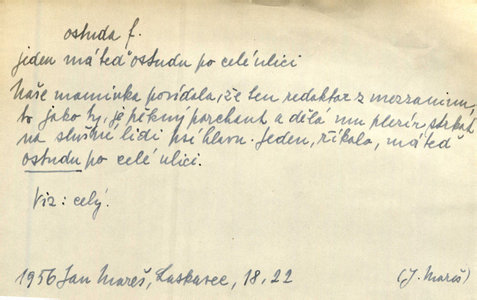 ostuda f.
jeden má teď ostudu po celé ulici
Naše maminka povídala, že ten redaktor z mezzaninu,
to jako ty, je pěknej parchant a dělá mu plezír, strkat
na slušné lidi psí hlavu. Jeden, říkala, má teď
ostudu po celé ulici.
Viz: celý.
1956 Jan Mareš, Laskavec, 18, 22 (J. Mareš)